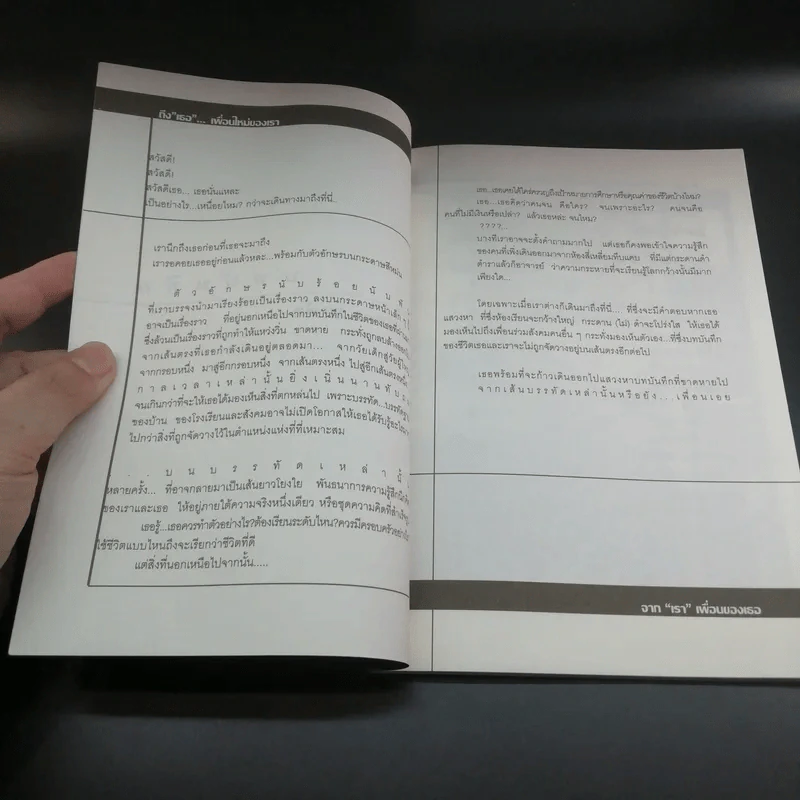 ถึง"เธอ"... เพื่อนใหม่ของเรา
สวัสดี!
สวัสดี!
สวัสดีเธอ... เธอนั่นแหละ
เป็นอย่างไร...เหนื่อยไหม? กว่าจะเดินทางมาถึงที่นี่..
เรานึกถึงเธอก่อนที่เธอจะมาถึง
เรารอคอยเธออยู่ก่อนแล้วหละ...พร้อมกับตัวอักษรบนกระดาษสีหม่น
ตัวอักษรนับร้อยนับพัน
ที่เราบรรจงนำมาเรียงร้อยเป็นเรื่องราว ลงบนกระดาษหน้าเล็ก ๆ
อาจเป็นเรื่องราว ที่อยู่นอกเหนือไปจากบทบันทึกในชีวิตของเธอที่ผ่านมา
ซึ่งล้วนเป็นเรื่องราวที่ถูกทำให้แหว่งวิ่น ขาดหาย กระทั่งถูกลบล้างออก
จากเส้นตรงที่เธอกำลังเดินอยู่ตลอดมา... จากวัยเด็กสู่วัยผู้ใหญ่
จากกรอบหนึ่ง มาสู่อีกกรอบหนึ่ง จากเส้นตรงหนึ่ง ไปสู่อีกเส้นตรงหนึ่ง
กาลเวลาเหล่านั้นยิ่งเนิ่นนาน
จนเกินกว่าที่จะให้เธอได้มองเห็นสิ่งที่ตกหล่นไป เพราะบรรทัด...บรรทัด
ของบ้าน ของโรงเรียนและสังคมอาจไม่เปิดโอกาสให้เธอได้รับรู้อะไร
ไปกว่าสิ่งที่ถูกจัดวางไว้ในตำแหน่งแห่งที่ที่เหมาะสม
..บนบรรทัดเหล่านี้
หลายครั้ง... ที่อาจกลายมาเป็นเส้นยาวโยงใย พันธนาการความรู้สึกนึกคิด
ของเราและเธอ ให้อยู่ภายใต้ความจริงหนึ่งเดียว หรือชุดความคิดที่สำเร็จรูป
เธอรู้...เธอควรทำตัวอย่างไร?ต้องเรียนระดับไหน?ควรมีครอบครัวอย่างไร
ใช้ชีวิตแบบไหนถึงจะเรียกว่าชีวิตที่ดี
แต่สิ่งที่นอกเหนือไปจากนั้น.....
เธอ...เธอเคยได้ใคร่ครวญถึงเป้าหมายการศึกษาหรือคุณค่าของชีวิตบ้างไหม?
เธอ...เธอคิดว่าคนจน คือใคร? จนเพราะอะไร? คนจนคือ
คนที่ไม่มีเงินหรือเปล่า? แล้วเธอหละ จนไหม?
????...
บางทีเราอาจจะตั้งคำถามมากไป แต่เธอก็คงพอเข้าใจความรู้สึก
ของคนที่เพิ่งเดินออกมาจากห้องสี่เหลี่ยมทึบแคบ ที่มีแต่กระดานดำ
ตำราแล้วก็อาจารย์ ว่าความกระหายที่จะเรียนรู้โลกกว้างนั้นมีมาก
เพียงใด...
โดยเฉพาะเมื่อเราต่างก็เดินมาถึงที่นี่.... ที่ซึ่งจะมีคำตอบหากเธอ
แสวงหา ที่ซึ่งห้องเรียนจะกว้างใหญ่ กระดาน (ไม่) ดำจะโปร่งใส ให้เธอได้
มองเห็นไปถึงเพื่อนร่วมสังคมคนอื่น ๆ กระทั่งมองเห็นตัวเอง...ที่ซึ่งบทบันทึก
ของชีวิตเธอและเราจะไม่ถูกจัดวางอยู่บนเส้นตรงอีกต่อไป
เธอพร้อมที่จะก้าวเดินออกไปแสวงหาบทบันทึกที่ขาดหายไป
จากเส้นบรรทัดเหล่านั้นหรือยัง...เพื่อนเอย
จาก "เรา" เพื่อนของเธอ